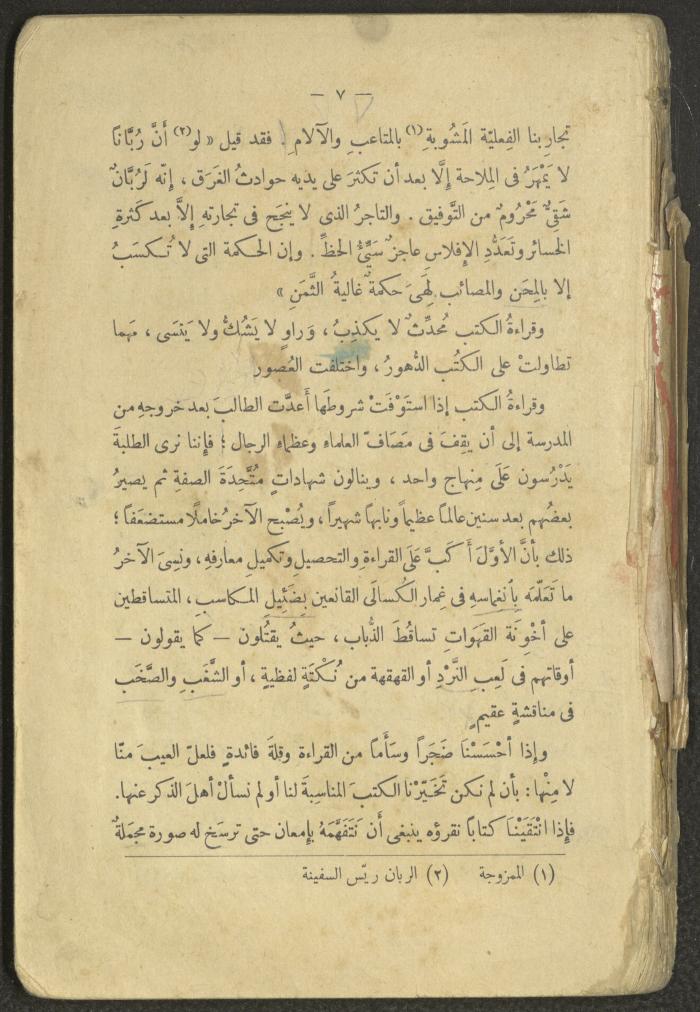 — ٧ —
تجارِبنا الفِعليّة المَشُوبةِ(١) بالمتاعبِ والآلامِ. فقد قيل « لو(٢) أَنَّ رُبَّاناً
لا يَمْهَرُ فى المِلاحة إلَّا بعد أن تكثرَ على يديه حوادثُ الغَرَق ، إنّه لَرُبَّانٌ
شَقِىٌّ مَحْرُومٌ من التَّوفيق . والتاجرُ الذى لا ينجَح فى تجارتهِ إلاَّ بعد كَثرةِ
الخسائر وتَعَدُّدِ الإفلاس عاجزٌ سَيِّئُ الحظِّ . وإن الحـكمة التى لا تُـكسَبُ
إلا بالمِحَن والمصائب لَهِىَ حكمةٌ غاليةُ الثَّمَنِ »
وقراءةُ الكتب مُحدِّثٌ لا يكذِبُ ، وَراوٍ لا يَشُكُّ ولا يَنسَى ، مَهما
تطاولتْ على الكتُب الدُّهورُ ، واختلفت العُصور
وقراءةُ الكتب إذا استَوْفَتْ شروطَها أَعدَّت الطالبَ بعد خروجهِ من
المدرسة إلى أن يقِفَ فى مَصَافّ العلماءِ وعظماءِ الرجال ؛ فإننا نرى الطلبةَ
يَدْرُسون عَلَى مِنهاج واحد ، وينالون شهاداتٍ مُتَّحِدَةَ الصفةِ ثم يصيرُ
بعضُهم بعد سنين عالماً عظيماً ونابهاً شهيراً ، ويُصْبح الآخرُ خاملًا مستضعَفاً ؛
ذلك بأنَّ الأوَّلَ أَكَبَّ عَلَى القراءةِ والتحصيلِ وتكميلِ معارفهِ ، ونسِىَ الآخرُ
ما تَعَلَّمَه بِٱنغِماسِهِ فى غِمار الكُسالَى القانعين بِضَئيلِ المـكاسبِ ، المتساقطين
على أخْوِنَة القهَواتِ تساقطَ الذُّباب ، حيثُ يقتُلون — كما يقولون —
أوقاتهم فى لَعِبِ النَّرْدِ أو القهقهة من نُـكْتةٍ لفظيةٍ ، أو الشَّغَبِ والصَّخَب
فى مناقشةٍ عقيمٍ
وإذا أحْسَسْنَا ضَجَراً وسَأَماً من القراءة وقلةَ فائدةٍ فلعلّ العيبَ منّا
لا مِنْها : بأن لم نكن تَخَيَّرْنا الكتبَ المناسِبةَ لنا أو لم نسألْ أهلَ الذكر عنها.
فإذا انْتَقَيْنَا كتاباً نقرؤه ينبغى أَن نَتَفَهَّمَهُ بإمعان حتى ترسَخ له صورة مجمَلةٌ
(١) الممزوجة (٢) الربان ريّس السفينة